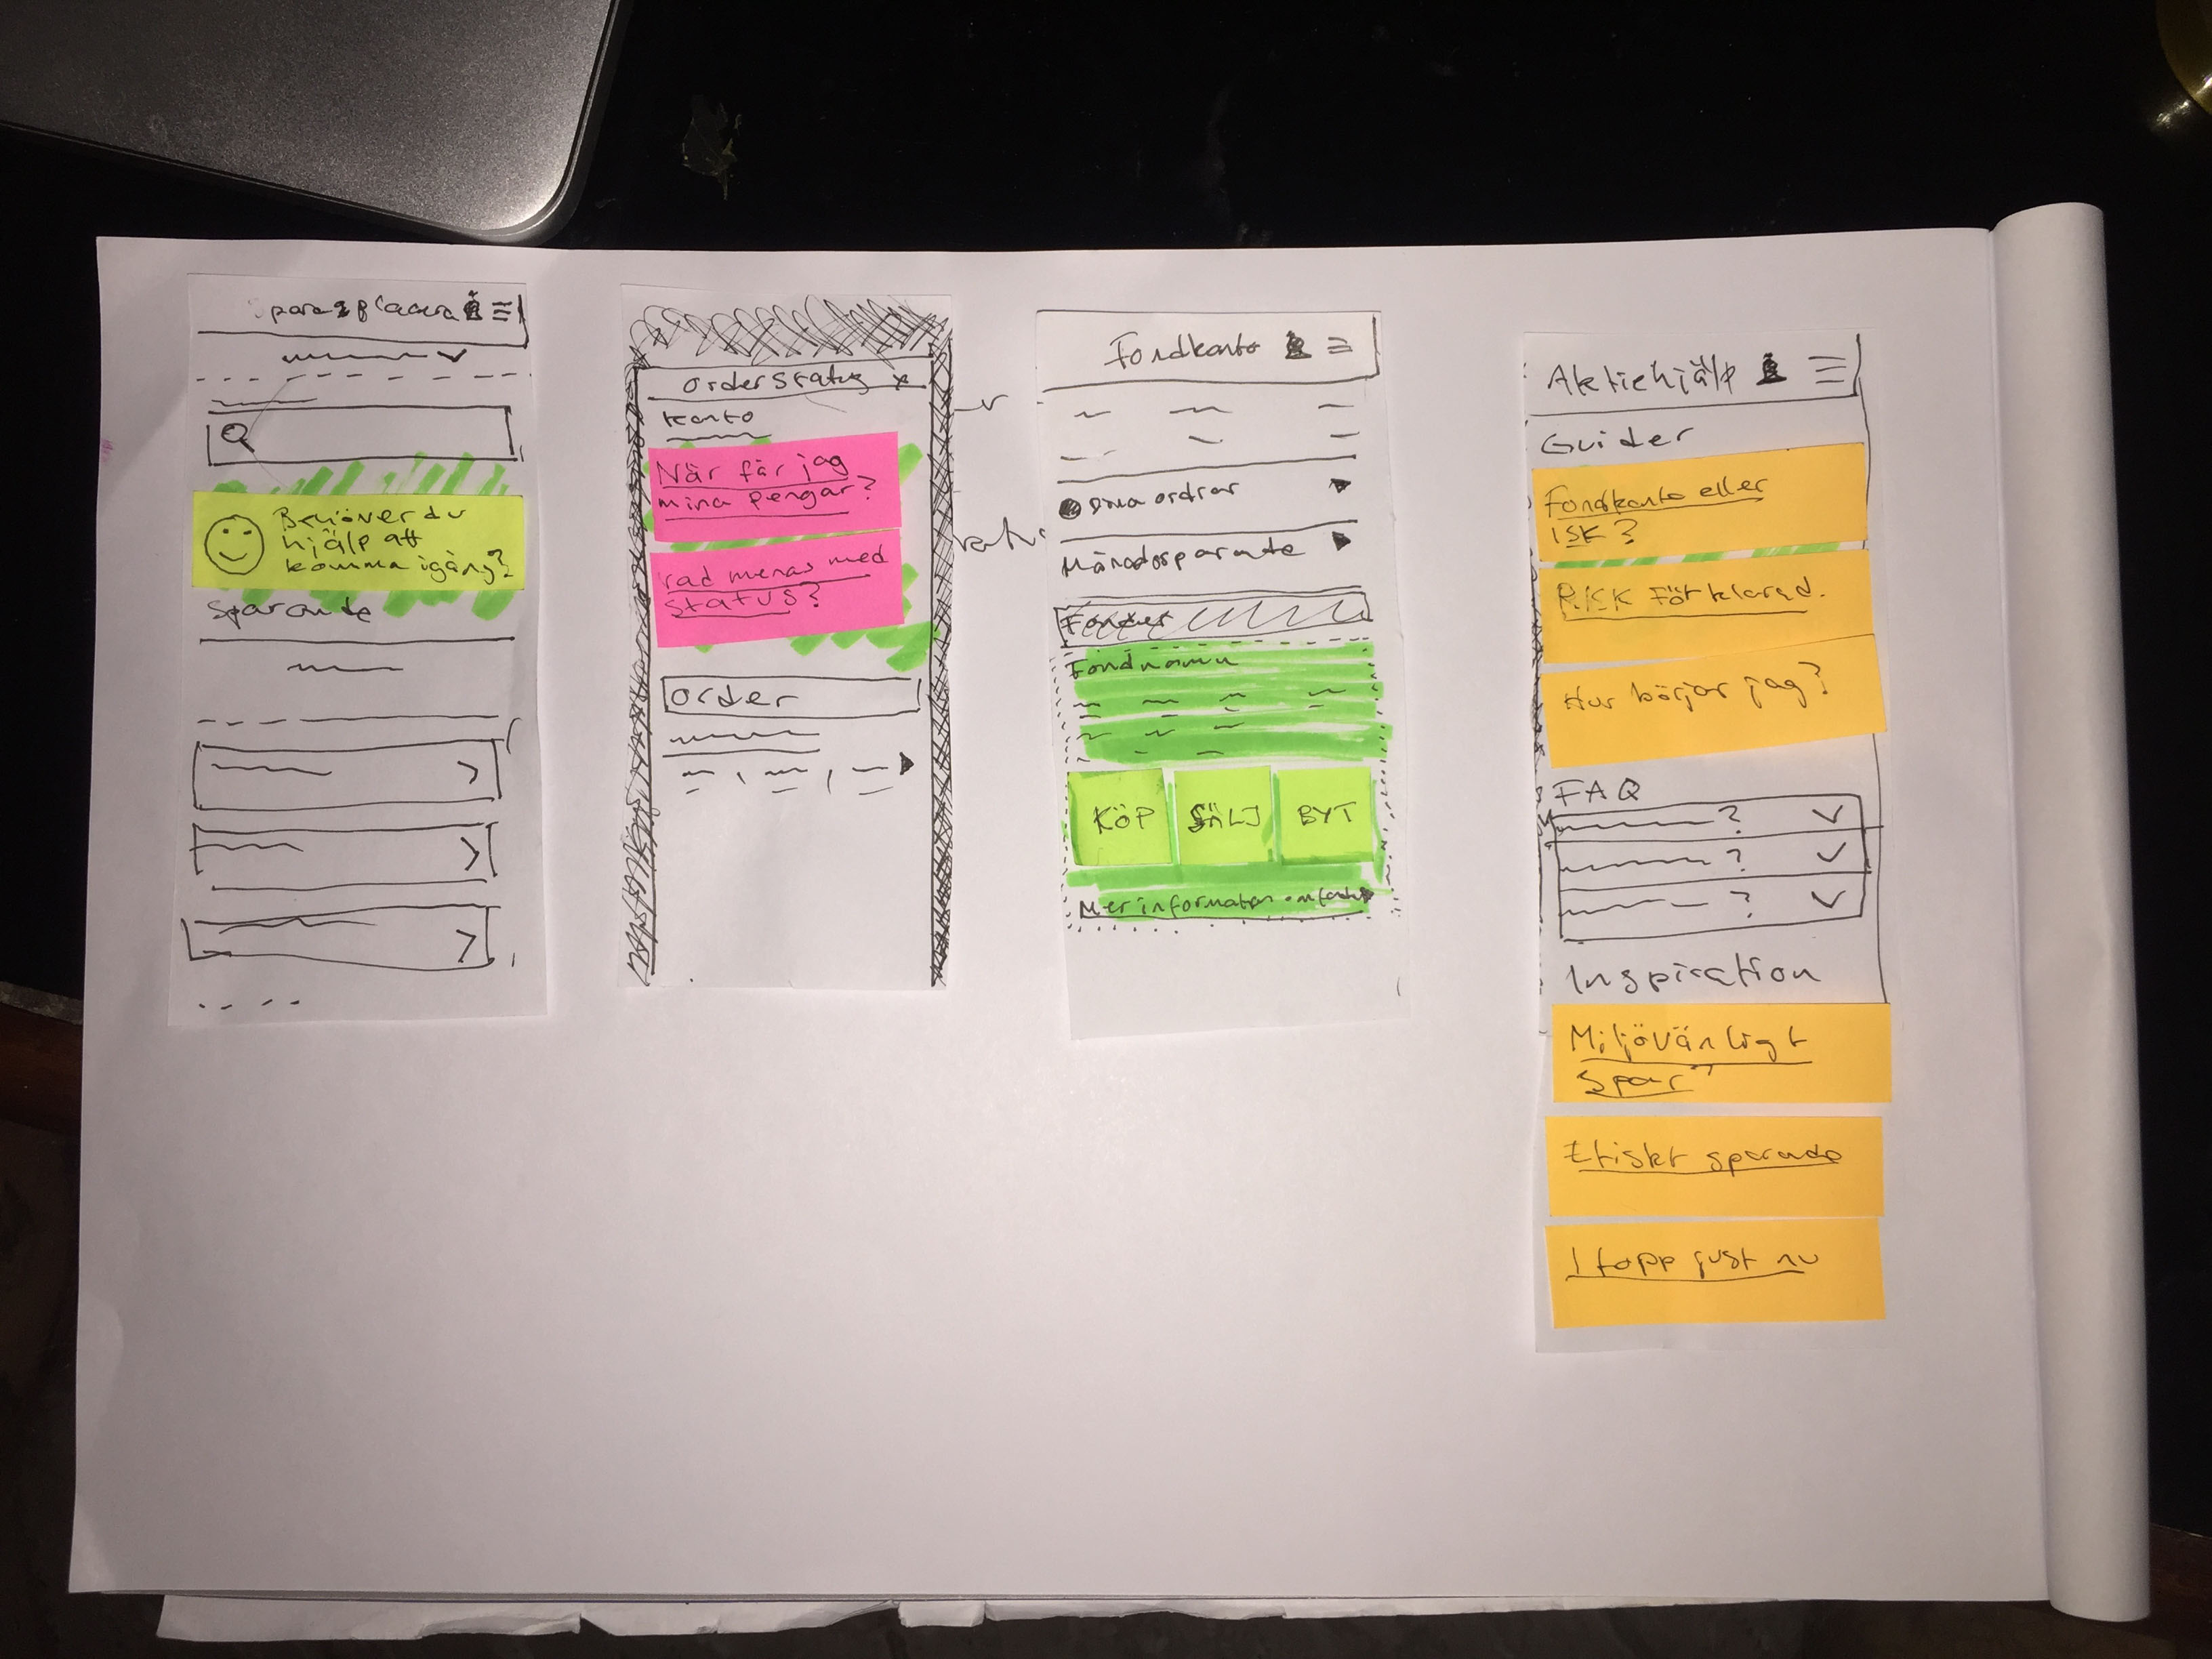 Spara & placera
Behöver du
hjälp att
komma igång?
Sparande
Orderstatus x
Konto
När får jag
mina pengar?
Vad menas med
status?
Order
Fondkonto
Dina ordrar
Månadssparande
Fonder
Fondnamn
KÖP
SÄLJ
BYT
Mer information om
Aktiehjälp
Guider
Fondkonto eller
ISK?
Risk Förklarad.
Hur börjar jag?
FAQ
?
?
?
Inspiration
Miljövänligt
Spar
Etiskt sparande
I topp just nu